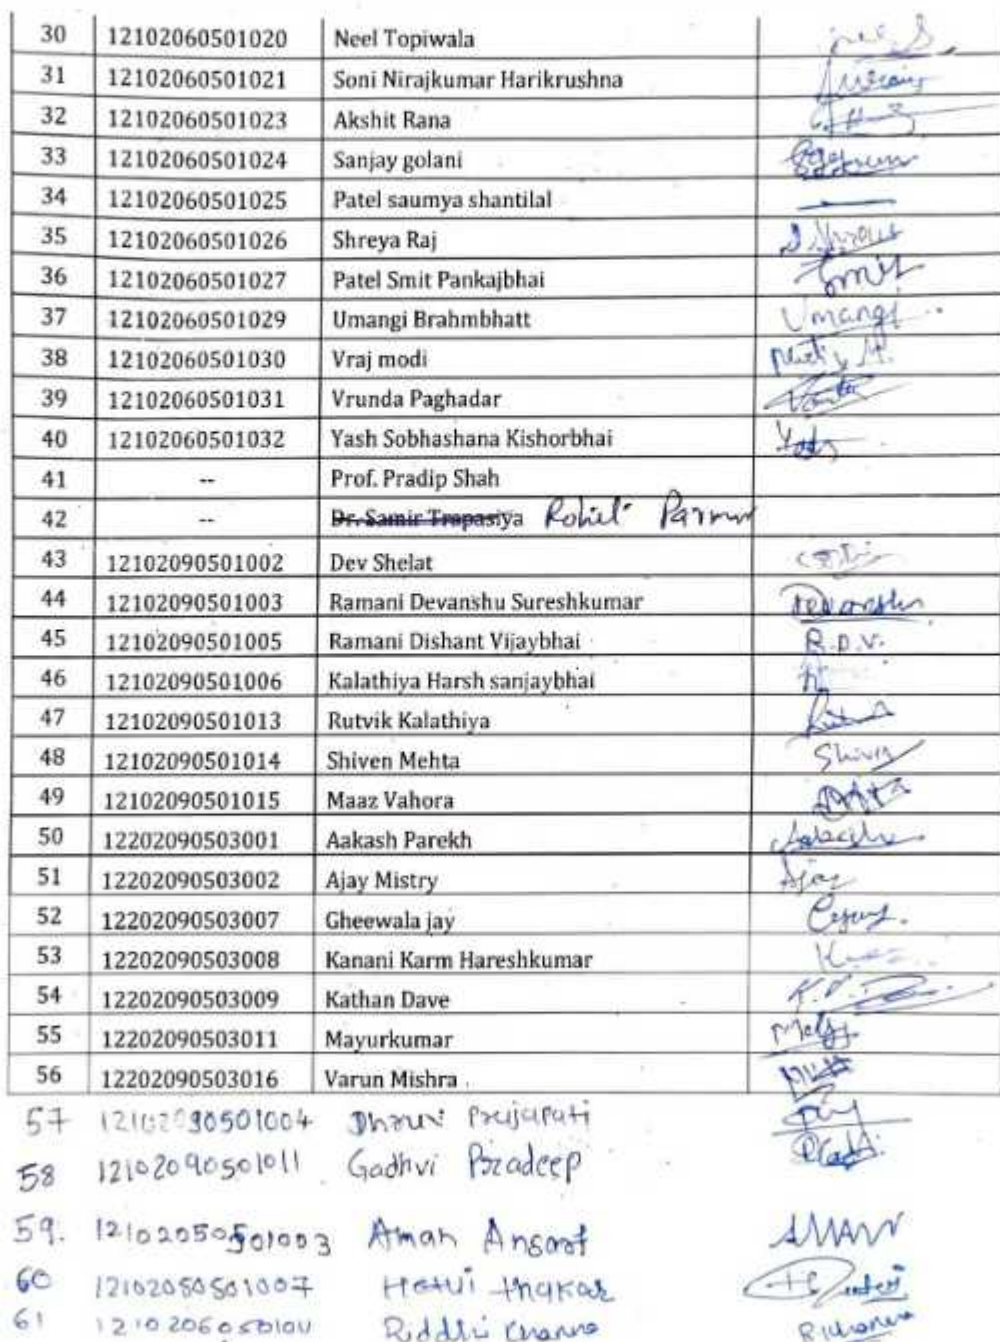 30 12102060501020 Neel Topiwala
31 12102060501021 Soni Nirajkumar Harikrushna
32 12102060501023 Akshit Rana
33 12102060501024 Sanjay golani
34 12102060501025 Patel saumya shantilal
35 12102060501026 Shreya Raj
36 12102060501027 Patel Smit Pankajbhai Smit
37 12102060501029 Umangi Brahmbhatt Umangi
38 12102060501030 Vraj modi
39 12102060501031 Vrunda Paghadar
40 12102060501032 Yash Sobhashana Kishorbhai Yash
41 -- Prof. Pradip Shah
42 -- Dr. Samir Trapasiya Rohit Parmar
43 12102090501002 Dev Shelat
44 12102090501003 Ramani Devanshu Sureshkumar Devanshu
45 12102090501005 Ramani Dishant Vijaybhai R.D.V.
46 12102090501006 Kalathiya Harsh sanjaybhai
47 12102090501013 Rutvik Kalathiya
48 12102090501014 Shiven Mehta Shiven
49 12102090501015 Maaz Vahora
50 12202090503001 Aakash Parekh Aakash
51 12202090503002 Ajay Mistry Ajay
52 12202090503007 Gheewala jay
53 12202090503008 Kanani Karm Hareshkumar
54 12202090503009 Kathan Dave
55 12202090503011 Mayurkumar
56 12202090503016 Varun Mishra
57 12102090501004 Dhruvi Prajapati
58 12102090501011 Gadhvi Pradeep
59. 12102050501003 Aman Ansari AMAN
60 12102050501007 Hetvi Thakar
61 Riddhi Khanna